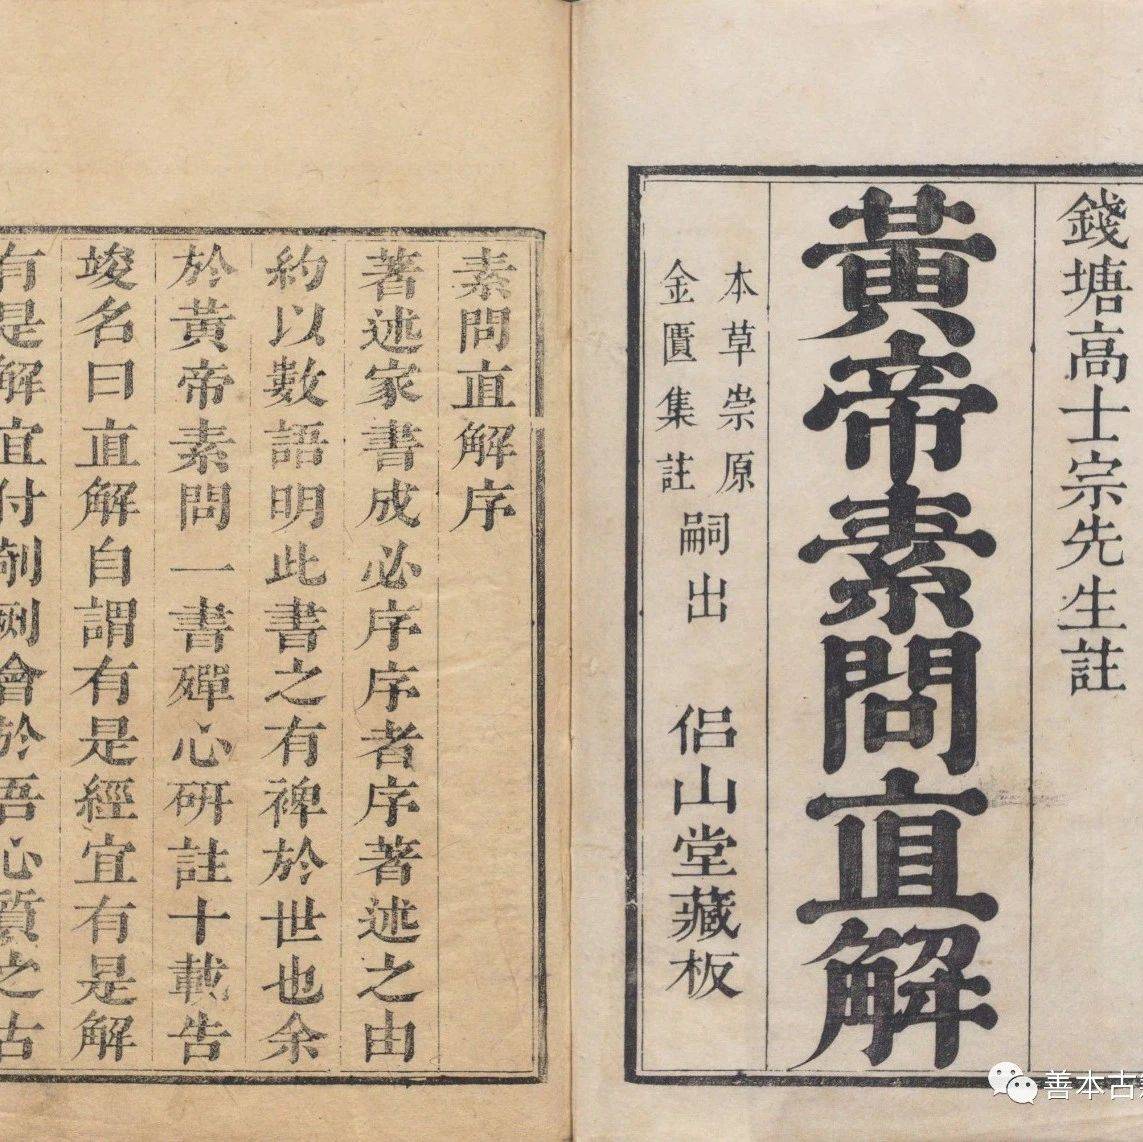 錢塘高士宗先生註
黃帝素問直解
本草崇原
金匱集註
嗣出
侶山堂藏板
素問直解序
著述家書成必序序者序著述之由
約以數語明此書之有裨於世也余
於黃帝素問一書殫心研註十載告
竣名曰直解自謂有是經宜有是解
有是解宜付剞劂會於吾心質之古
善本古